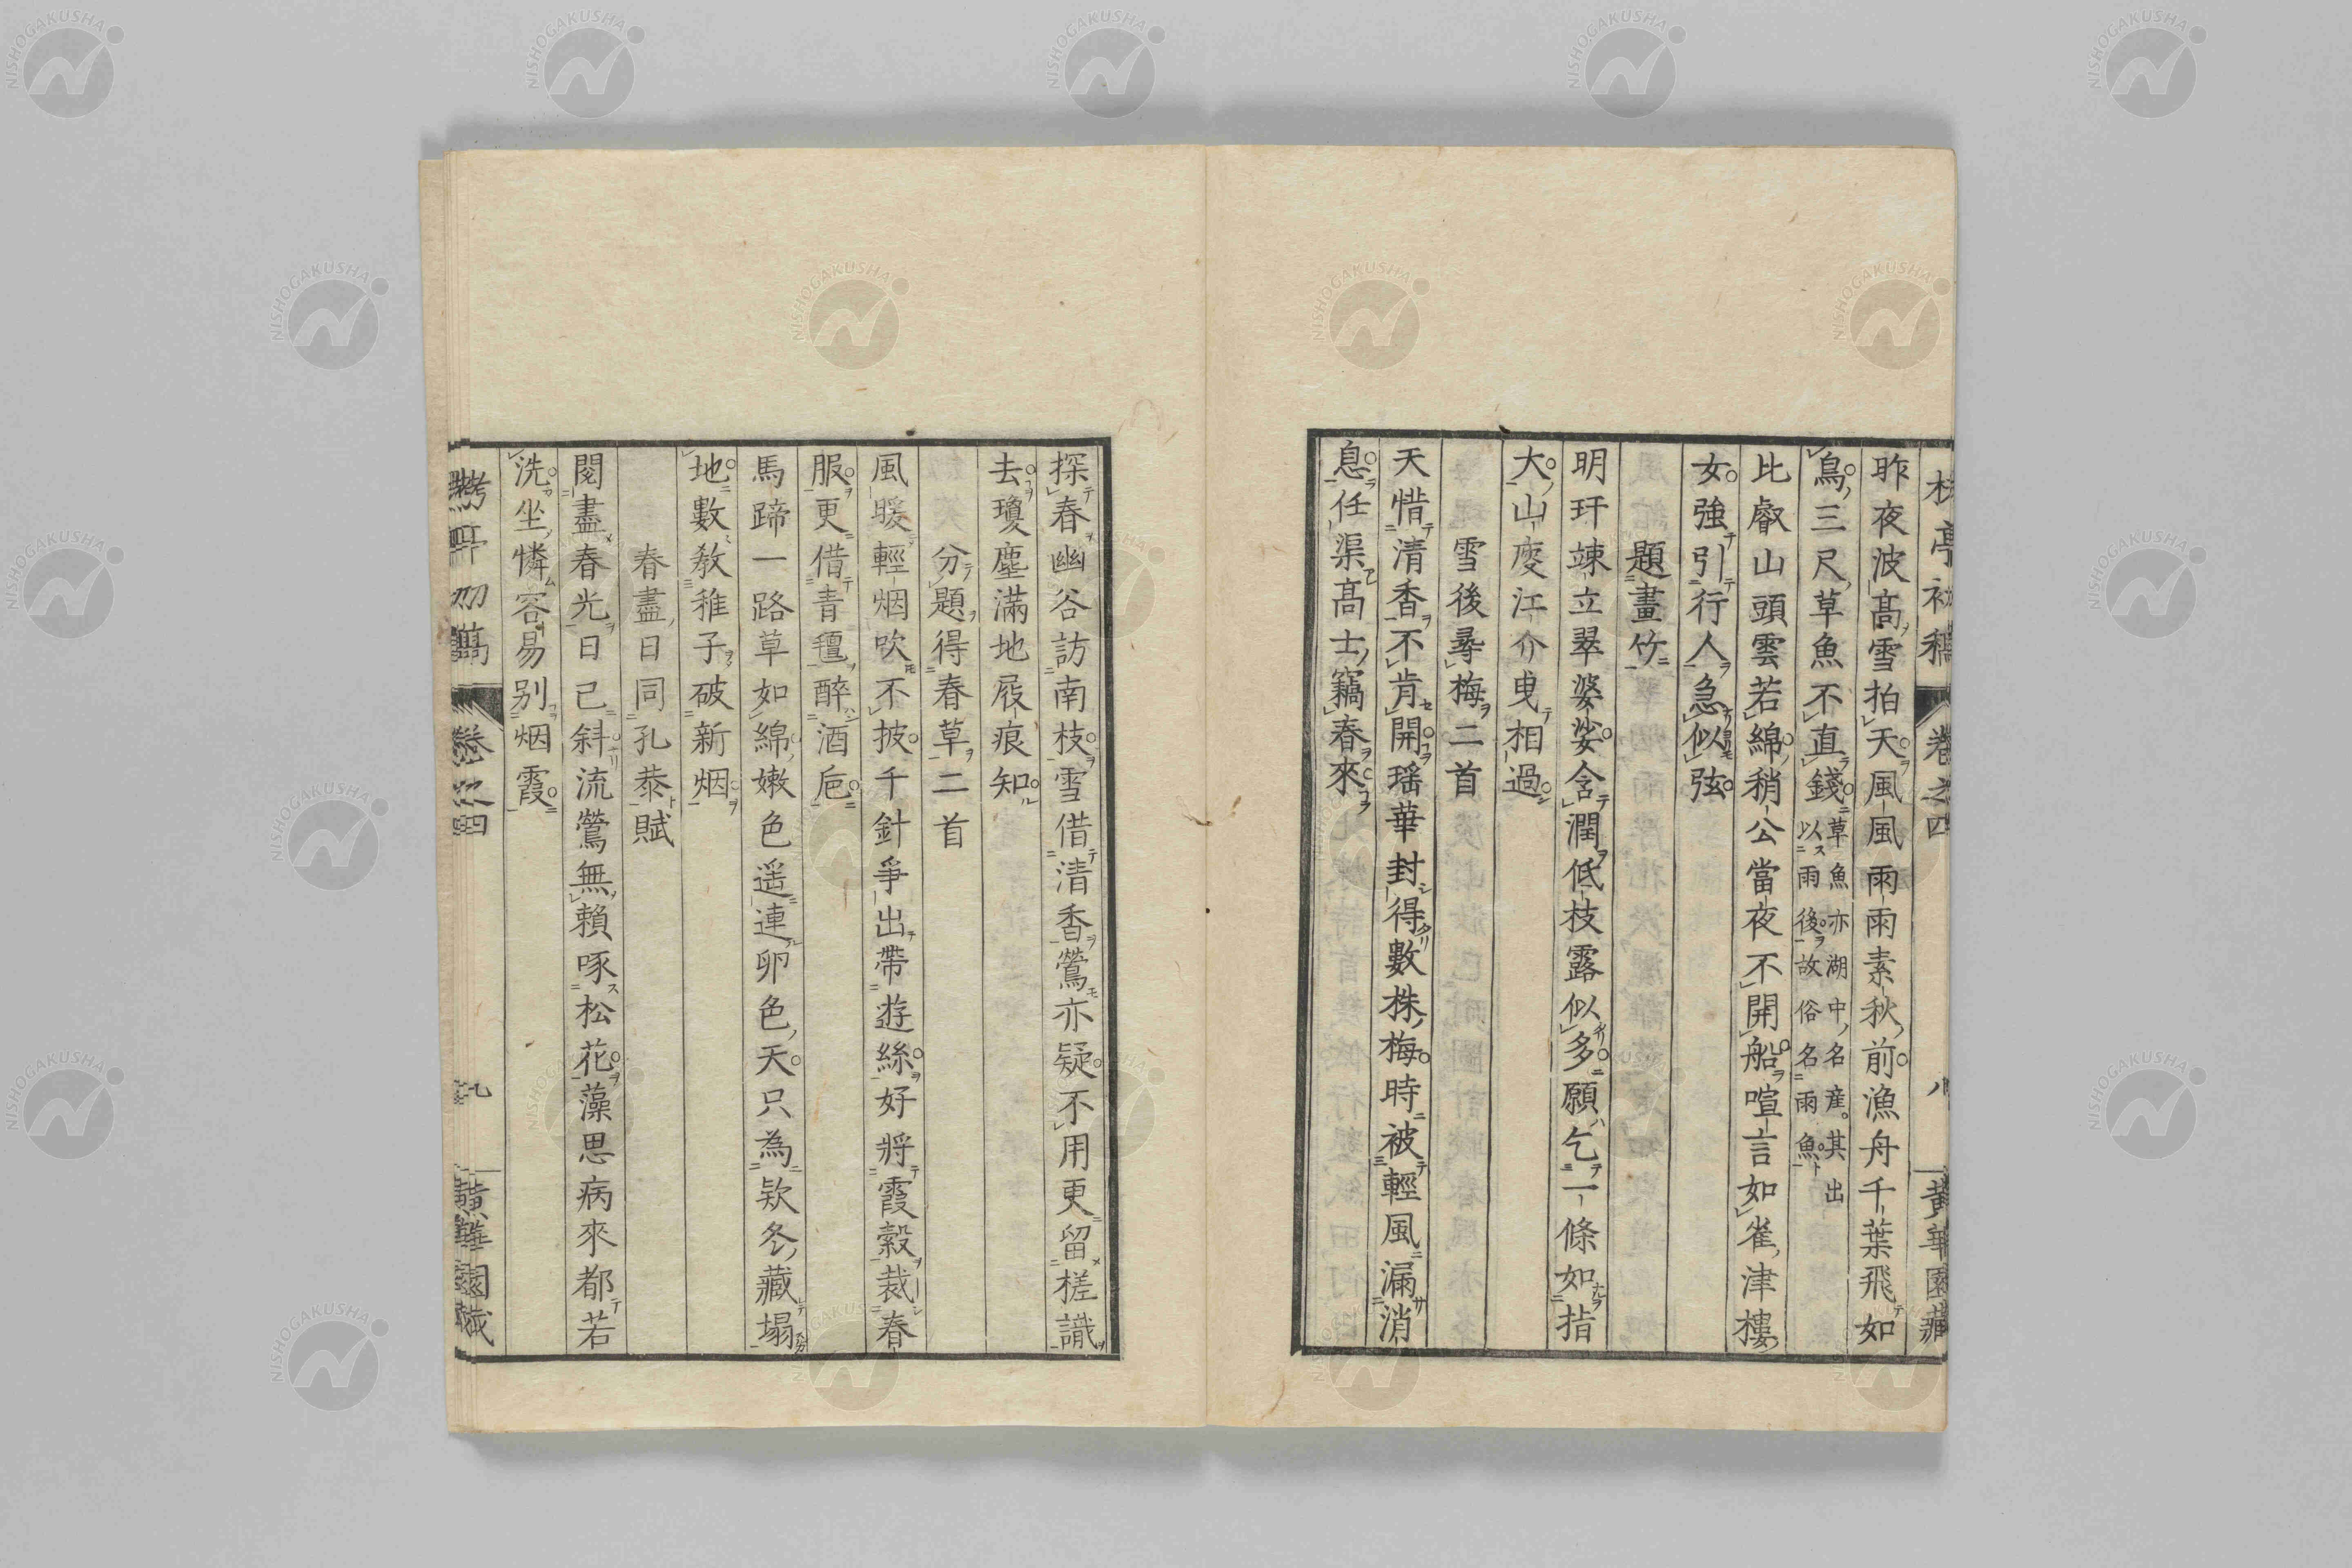 昨夜波高雪拍天風風雨雨素秋前漁舟千葉飛如
鳥三尺草魚不直錢草魚亦湖中名産其出
以雨後故俗名雨魚
比叡山頭雲若綿稍公當夜不開船喧言如雀津樓
女強引行人急似弦
題畫竹
明玕竦立翠婆娑含潤低枝露似多願乞一條如指
大山度江介曳相過
雪後尋梅二首
天惜清香不肯開瑶華封得數株梅時被輕風漏消
息任渠高士竊春來
探春幽谷訪南枝雪借清香鶯亦疑不用更留槎識
去瓊塵滿地屐痕知
分題得春草二首
風暖輕烟吹不披千針爭出帶遊絲好將霞縠裁春
服更借青氊醉酒巵
馬蹄一路草如綿嫩色遥連卵色天只為欵冬藏塌
地數教稚子破新烟
春盡日同孔恭賦
閱盡春光日已斜流鶯無賴啄松花藻思病來都若
洗坐憐容易別烟霞
卷之四
九
黄華園藏
亭初稿
卷之四
八
黄華園藏
NISHOGAKUSHA